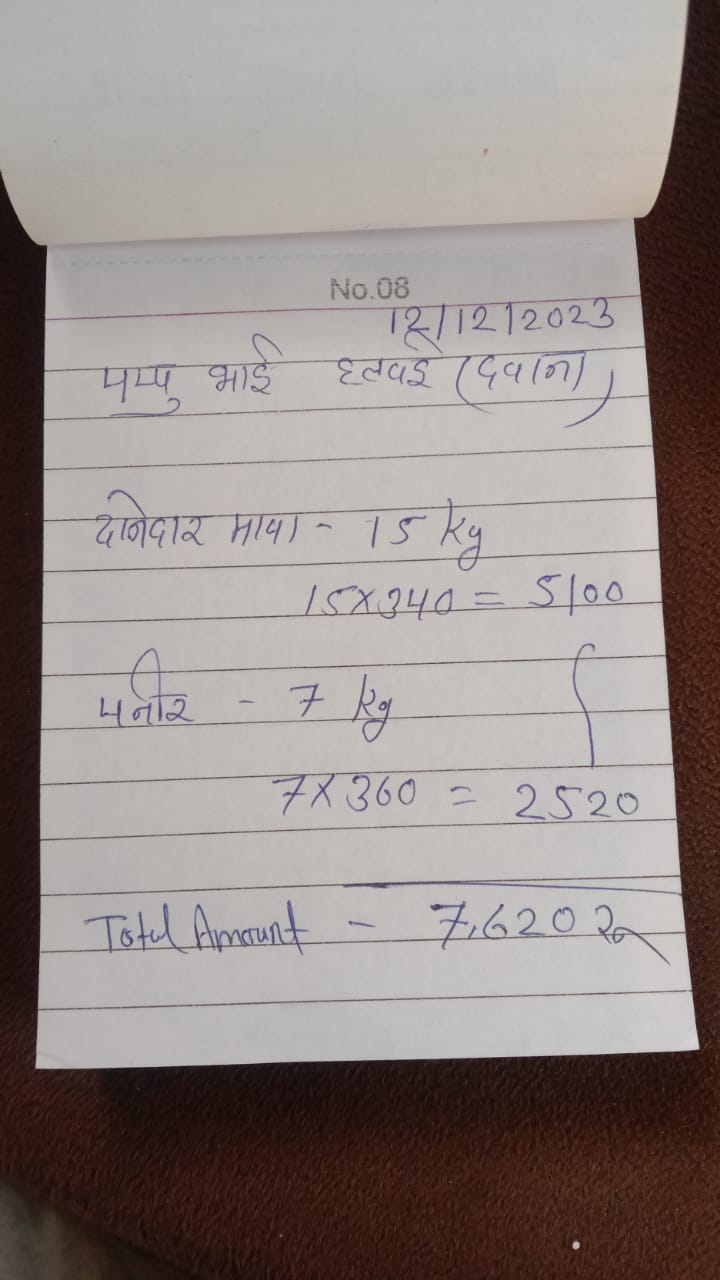 No.08
12/12/2023
पप्पु भाई हलवाई (दवाना)
दानेदार मावा - 15 kg
15x340 = 5100
पनीर - 7 kg
7x360 = 2520
Total Amount - 7,620 रु